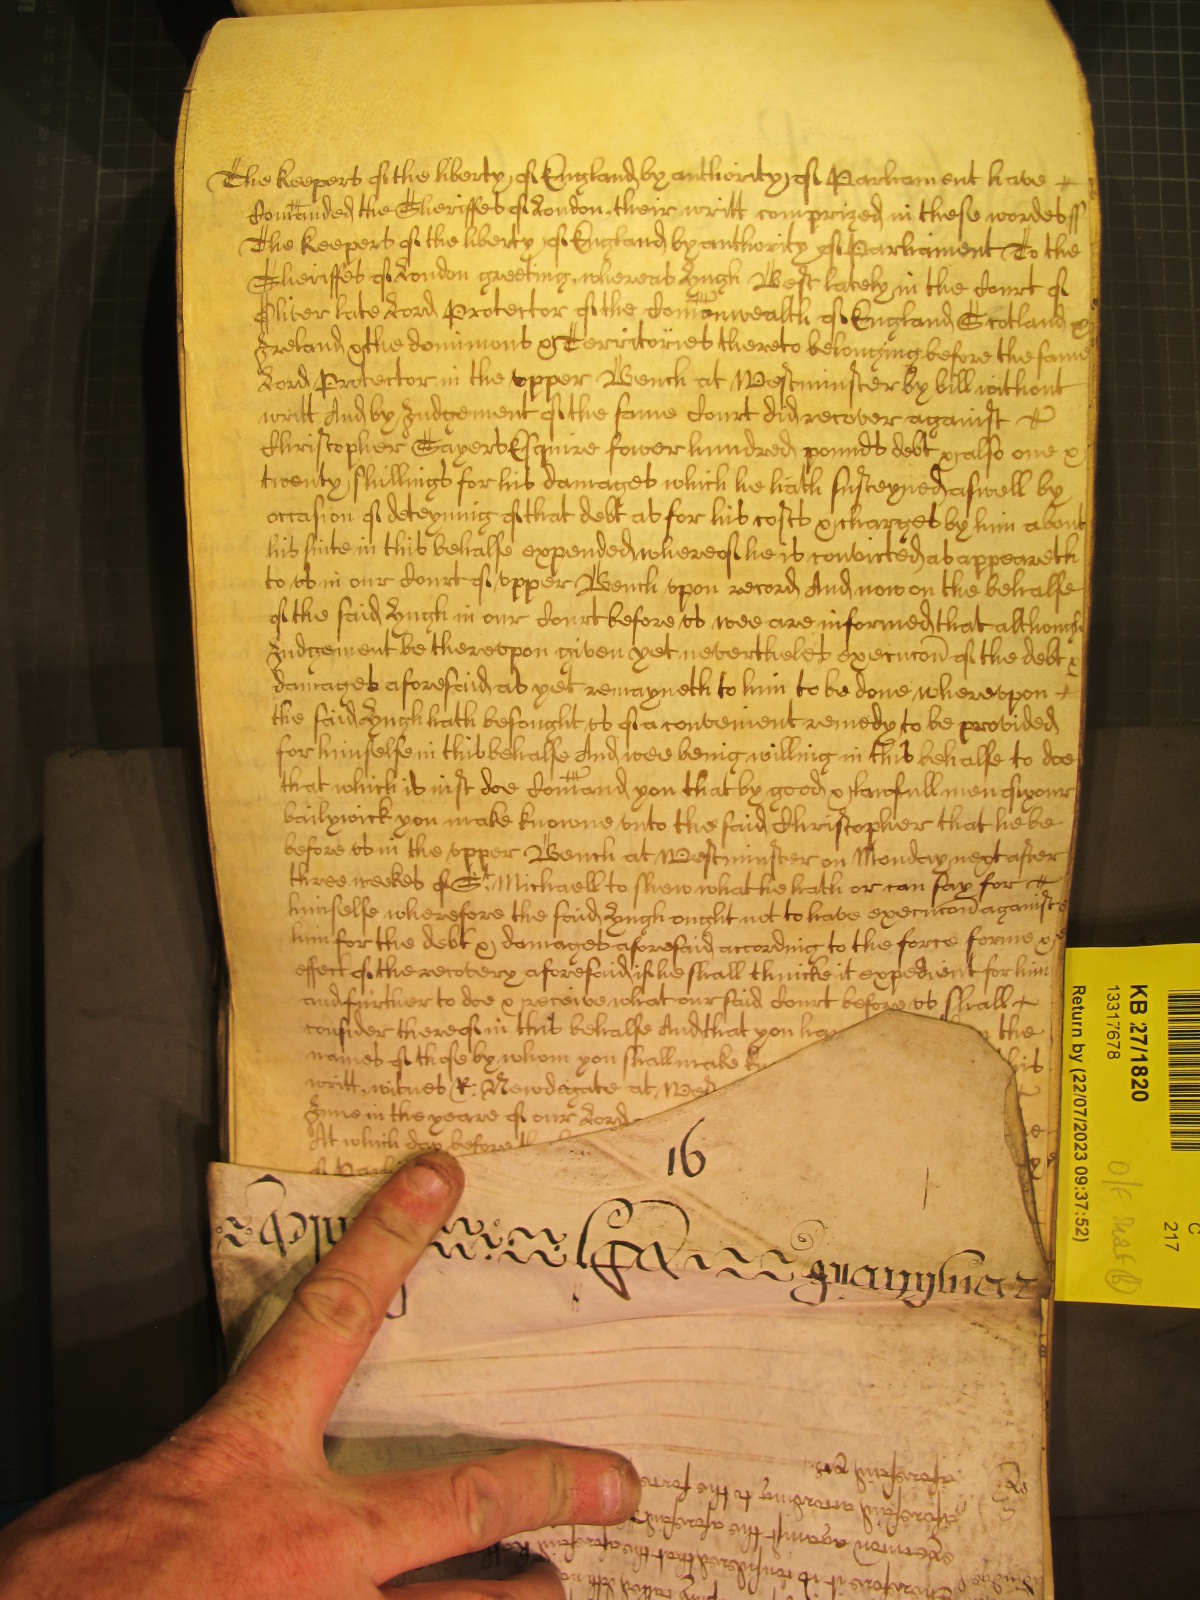 The Keepers of the liberty of England by authority of Parliament have
Com̄anded the Sheriffes of London their writt comprized in these wordes ss
The Keepers of the liberty of England by authority of Parliament To the
Sheriffes of London greeting whereas Hugh West lately in the Court of
Oliver late Lord Protector of the Com̄onwealth of England Scotland &
Ireland & the dominions & Territories thereto belonging before the same
Lord Protector in the vpper Bench at Westminster by bill without
writt And by Judgement of the same Court did recover against
Christopher Sayers Esquire fower hundred pounds debt & also one &
twenty shillings for his damages which he hath susteyned aswell by
occasion of deteyning of that debt as for his costs & charges by him about
his suite in this behalfe expended whereof he is convicted as appeareth
to vs in our Court of vpper Bench vpon record And now on the behalfe
of the said Hugh in our Court before vs wee are informed that although
Judgement be therevpon given yet nevertheles execucon̄ of the debt &
damages aforesaid as yet remayneth to him to be done wherevpon
the said Hugh hath besought vs of a convenient remedy to be provided
for himselfe in this behalfe And wee being willing in this behalfe to doe
that which is iust doe Com̄and you that by good & lawfull men of your
bailywick you make knowne vnto the said Christopher that he be
before vs in the vpper Bench at Westminster on Monday next after
three weekes of St. Michaell to shew what he hath or can say for
himselfe wherefore the said Hugh ought not to have execucon̄ against
him for the debt & damages aforesaid according to the force forme &
effect of the recovery aforesaid if he shall thincke it expedient for him
and further to doe & receive what our said Court before vs shall
consider thereof in this behalfe And that you ha the
names of those by whom you shall make k his
writt witnes R: Newdigate at Wes
June in the yeare of our Lord
At which day before
16
aforesaid &c.
aforesaid according to the force
execution against the aforesaid
Therefore it is considered that the aforesaid
KB 27/1820
13317678
Return by (22/07/2023 09:37:52)
C
217